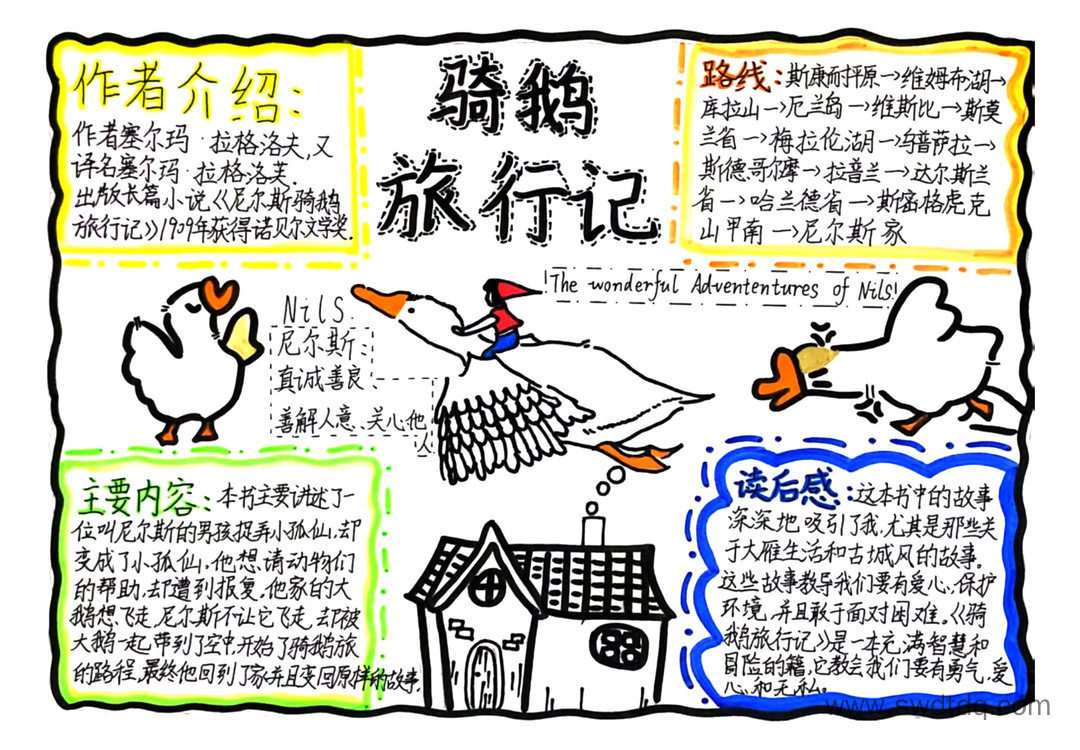 作者介绍:
作者塞尔玛·拉格洛夫,又
译名塞尔玛·拉格洛芙.
出版长篇小说《尼尔斯骑鹅
旅行记》1909年获得诺贝尔文学奖.
骑鹅
旅行记
路线:斯康耐平原→维姆布湖→
库拉山→厄兰岛→维斯比→斯莫
兰省→梅拉伦湖→乌普萨拉→
斯德哥尔摩→拉普兰→达尔斯兰
省→哈兰德省→斯密格虎克
山甲南→尼尔斯家
!The wonderful Advententures of Nils!
Nils.
尼尔斯:
真诚善良
善解人意、关心他
人
主要内容:本书主要讲述了一
位叫尼尔斯的男孩捉弄小狐仙,却
变成了小狐仙,他想请动物们
的帮助,却遭到报复,他家的大
鹅想飞走,尼尔斯不让它飞走,却被
大鹅一起带到了空中,开始了骑鹅旅
的路程,最终他回到了家并且变回原样的故事.
读后感:这本书中的故事
深深地吸引了我,尤其是那些关
于大雁生活和古城风的故事。
这些故事教导我们要有爱心、保护
环境,并且敢于面对困难。《骑
鹅旅行记》是一本充满智慧和
冒险的籍,它教会我们要有勇气,爱
心和无私。
www.swdtdq.com